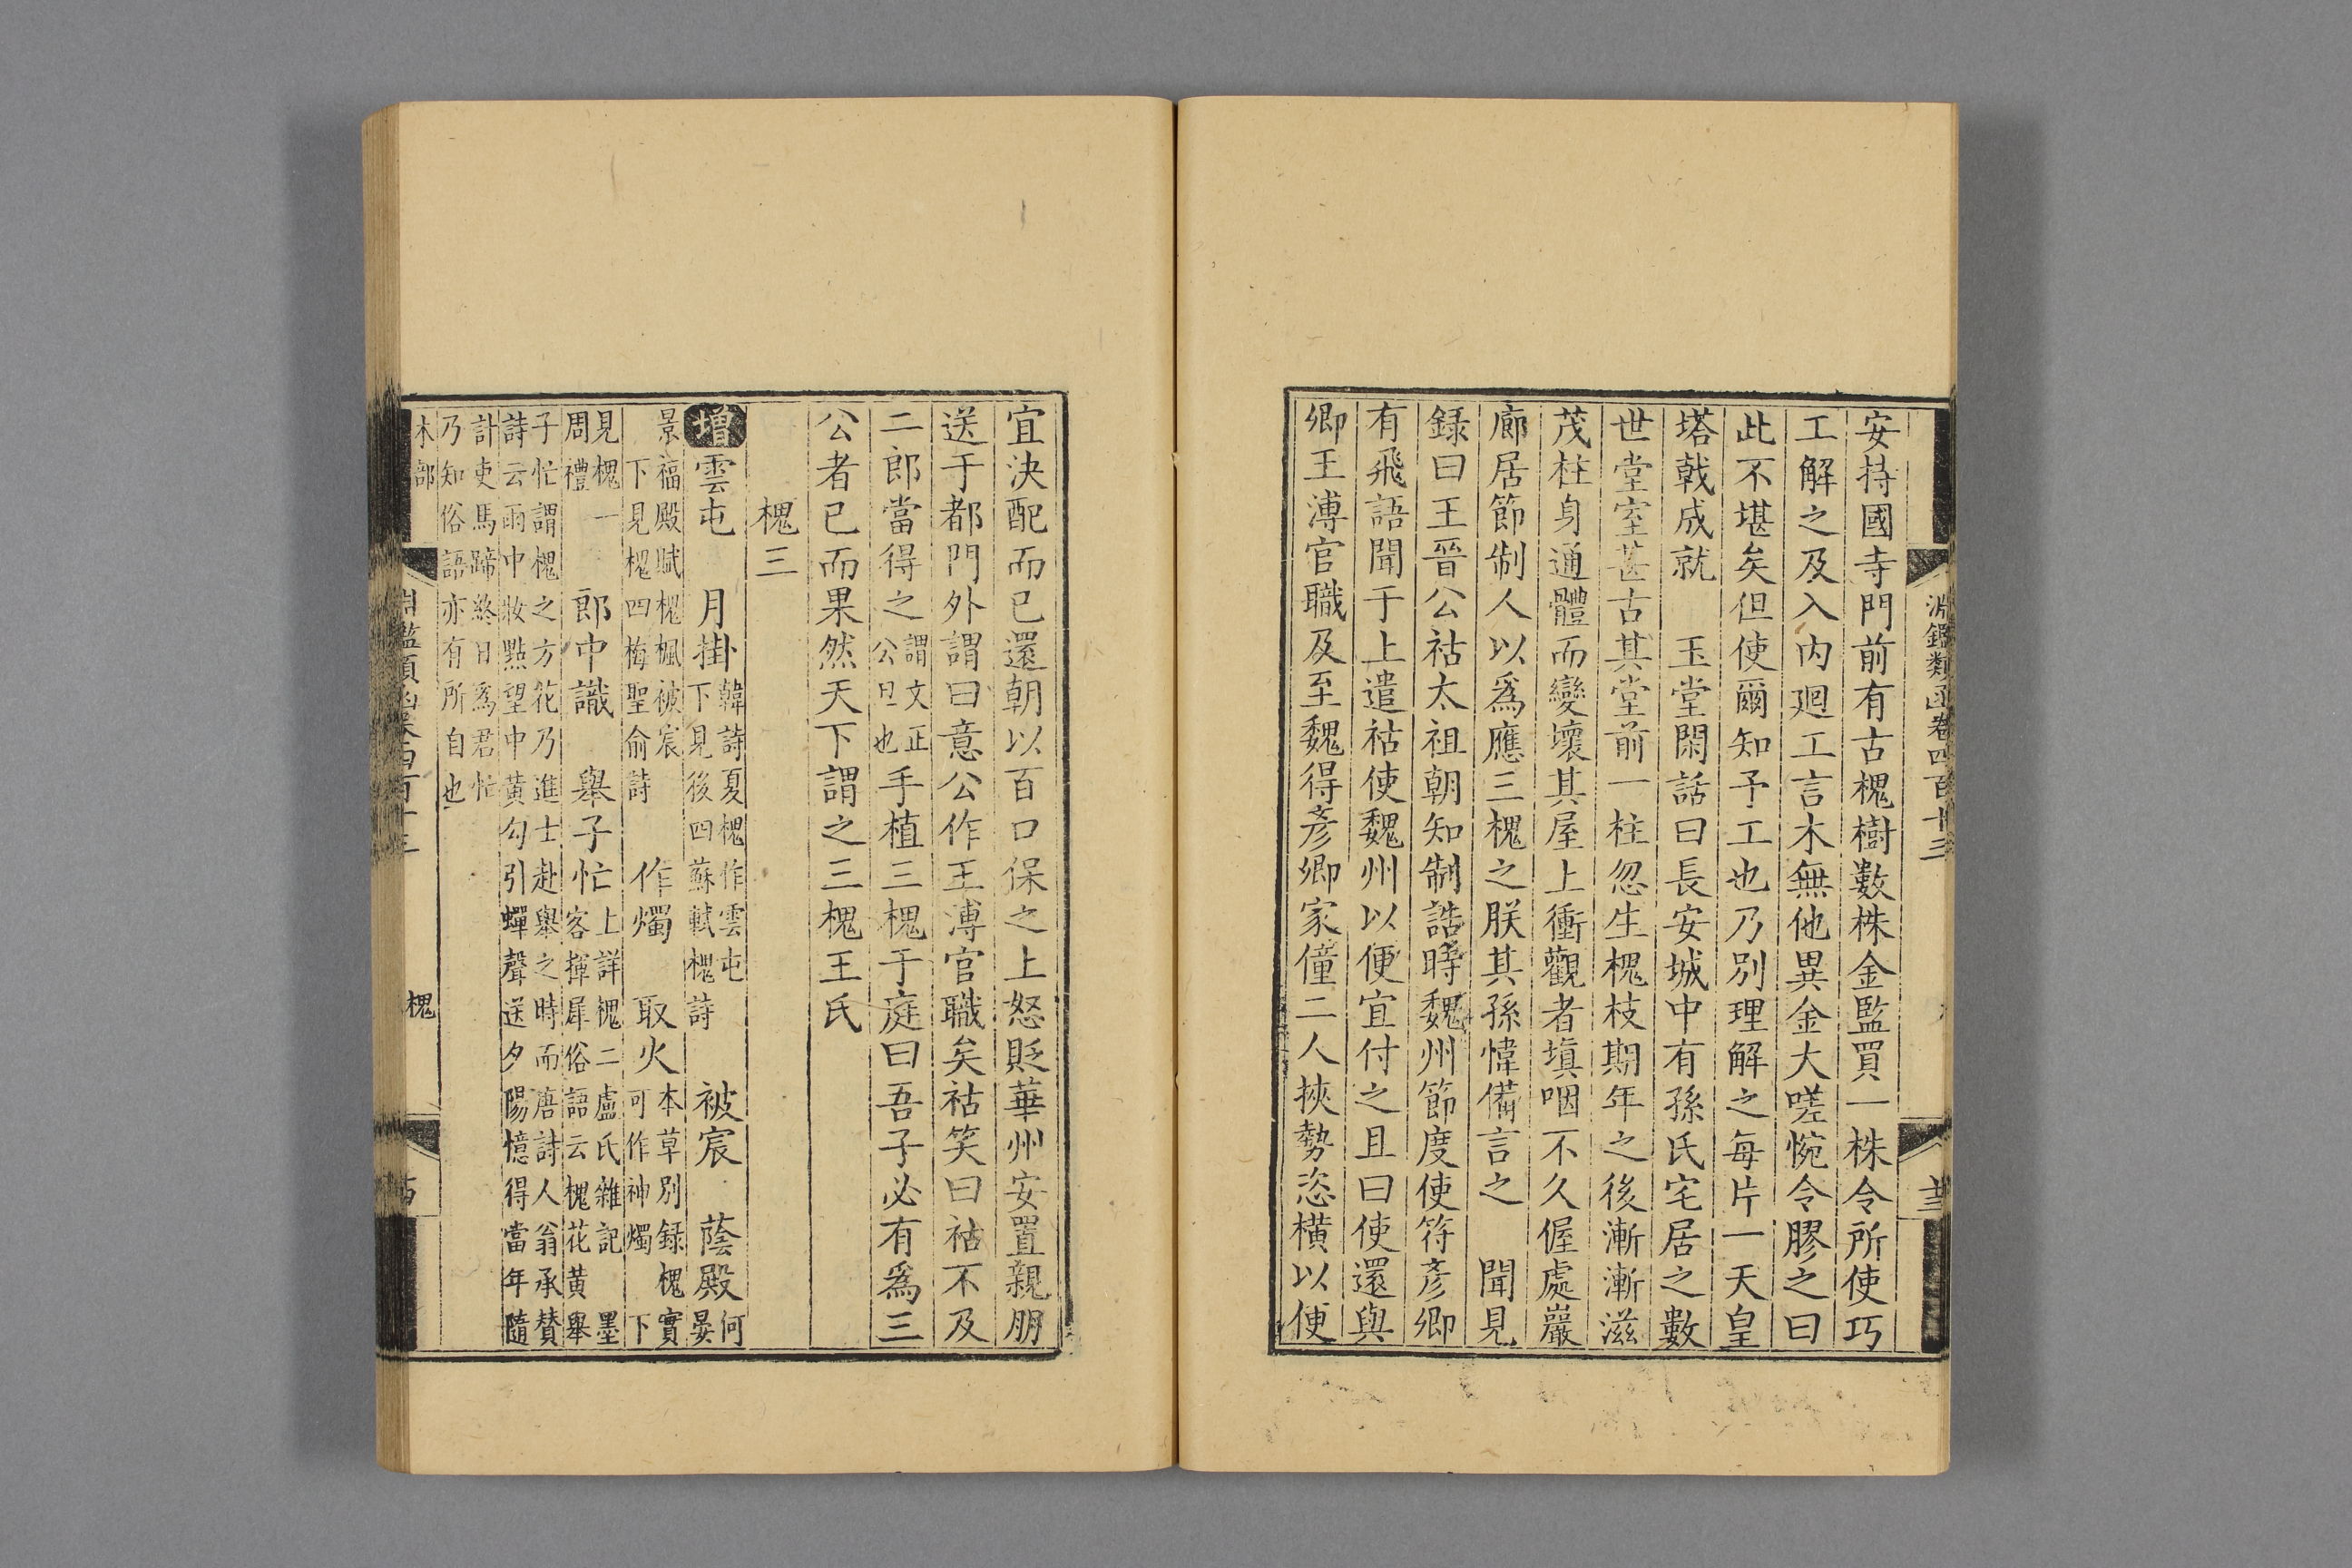 淵鑑類函卷四百十三
安持國寺門前有古槐樹數株金監買一株令所使巧
工解之及入內廻工言木無他異金大嗟惋令膠之曰
此不堪矣但使爾知予工也乃別理解之每片一天皇
塔戟成就　玉堂閑話曰長安城中有孫氏宅居之數
世堂室甚古其堂前一柱忽生槐枝期年之後漸漸滋
茂柱身通體而變壞其屋上衝觀者塡咽不久偓處巖
廊居節制人以爲應三槐之朕其孫愇備言之　聞見
録曰王晉公祜太祖朝知制誥時魏州節度使符彥卿
有飛語聞于上遣祜使魏州以便宜付之且曰使還與
卿王溥官職及至魏得彥卿家僮二人挾勢恣橫以便
宜決配而已還朝以百口保之上怒貶華州安置親朋
送于都門外謂曰意公作王溥官職矣祜笑曰祜不及
二郎當得之謂文正公旦也手植三槐于庭曰吾子必有爲三
公者已而果然天下謂之三槐王氏
槐三
增雲屯　月掛韓詩夏槐作雲屯下見後四蘇軾槐詩　被宸　蔭殿何晏
景福殿賦槐楓被宸下見槐四梅聖俞詩　作燭　取火本草別録槐實可作神燭　下
見槐一周禮　郎中識　舉子忙上詳槐二盧氏雜記　墨客揮犀俗語云槐花黃舉
子忙謂槐之方花乃進士赴舉之時而唐詩人翁承贊詩云雨中妝點望中黃勾引蟬聲送夕陽憶得當年隨
計吏馬蹄終日爲君忙乃知俗語亦有所自也
木部
槐